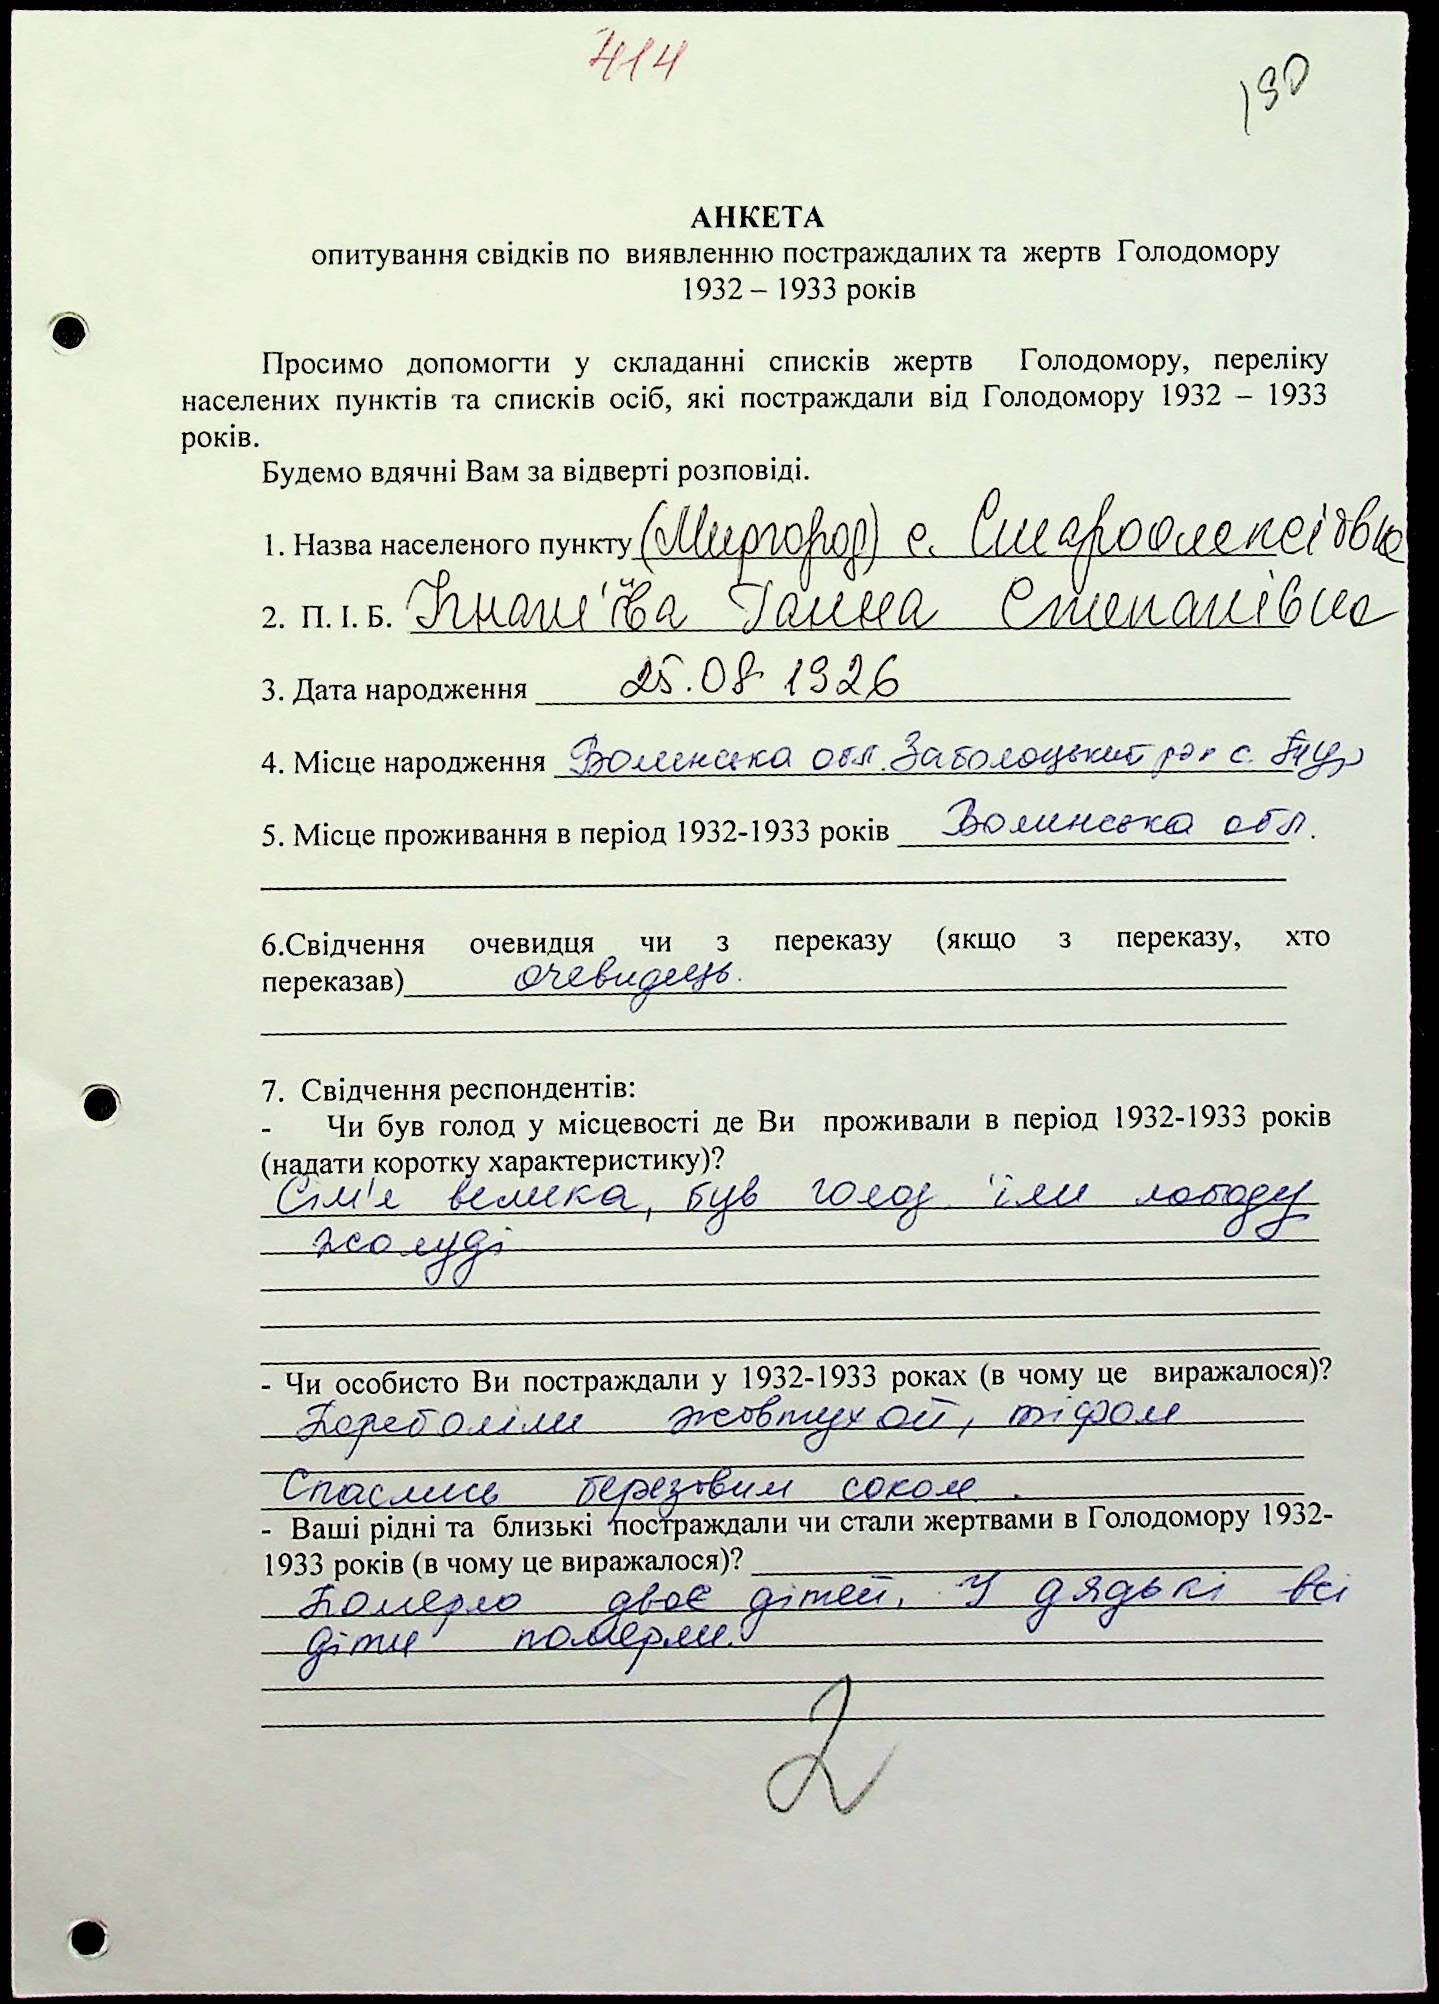 414
190
АНКЕТА
опитування свідків по виявленню постраждалих та жертв Голодомору
1932 – 1933 років
Просимо допомогти у складанні списків жертв Голодомору, переліку
населених пунктів та списків осіб, які постраждали від Голодомору 1932 – 1933
років.
Будемо вдячні Вам за відверті розповіді.
1. Назва населеного пункту (Миргород) с. Староолексіївка
2. П. І. Б. Гнат'їва Ганна Степанівна
3. Дата народження 25.08 1926
4. Місце народження Волинська обл. Заболоцький р-н с.
5. Місце проживання в період 1932-1933 років Волинська обл.
6.Свідчення очевидця чи з переказу (якщо з переказу, хто
переказав) очевидець.
7. Свідчення респондентів:
- Чи був голод у місцевості де Ви проживали в період 1932-1933 років
(надати коротку характеристику)?
Сім'я велика, був голод їли лободу
жолуді
- Чи особисто Ви постраждали у 1932-1933 роках (в чому це виражалося)?
Переболіли жовтухой, тіфом
Спаслись березовим соком.
- Ваші рідні та близькі постраждали чи стали жертвами в Голодомору 1932-
1933 років (в чому це виражалося)?
Померло двоє дітей. У дядькі всі
діти померли.
2